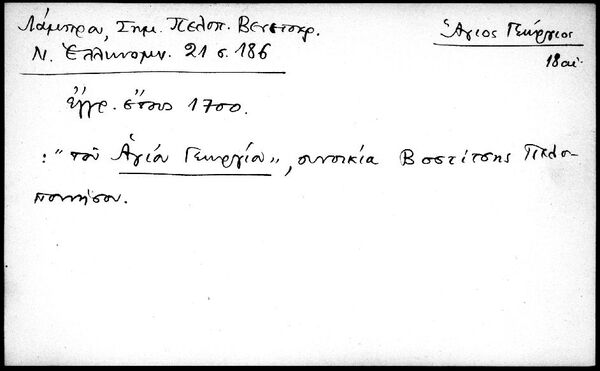 Λάμπρου, Σημ. Πελοπ. Βενετοκρ.
Ν. Ἑλληνομν. 21 σ. 186
Ἅγιος Γεώργιος
18 αἰ.
ἔγγρ. ἔτους 1700.
: "τοῦ Ἁγίου Γεωργίου", συνοικία Βοστίτσης Πελο-
ποννήσου.